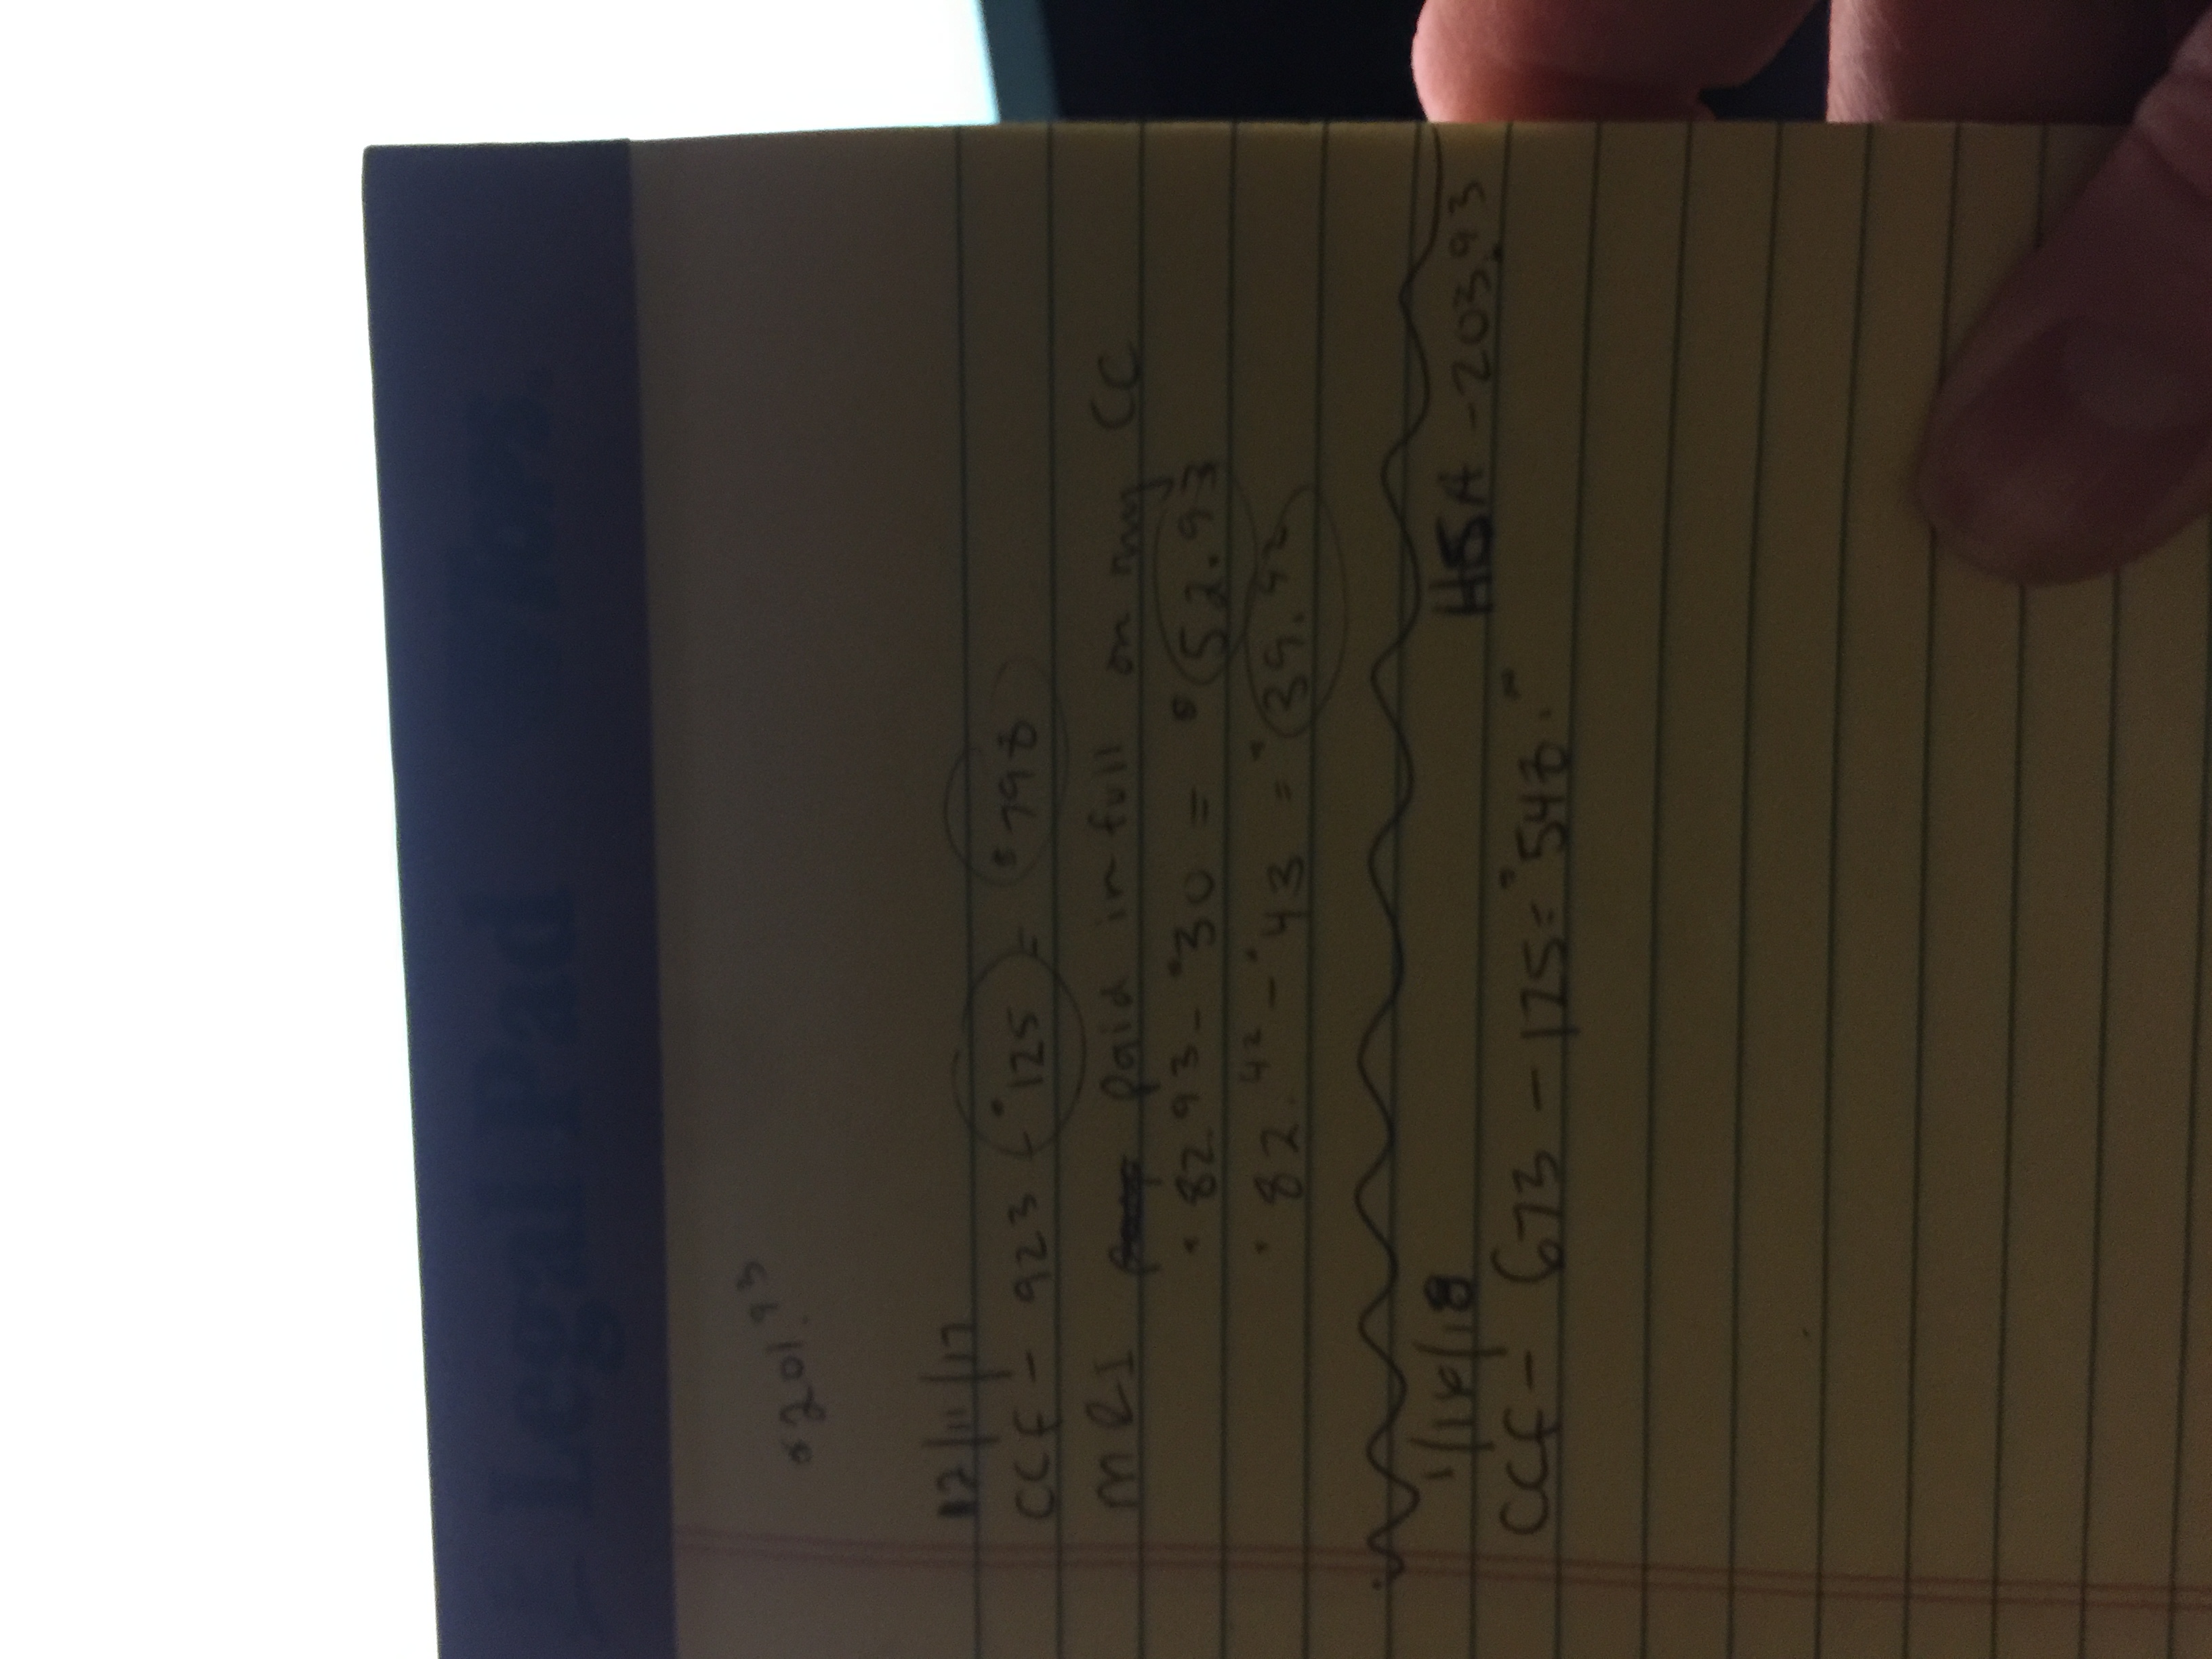 Legal Pad
$201.93
12/11/17
CCF - 923 - $125 = $798
MRI paid in full on my CC
$82.93 - $30 = $52.93
$82.42 - $43 = $39.42
HSA - 203.93
CCF - 673 - 125 = $548.